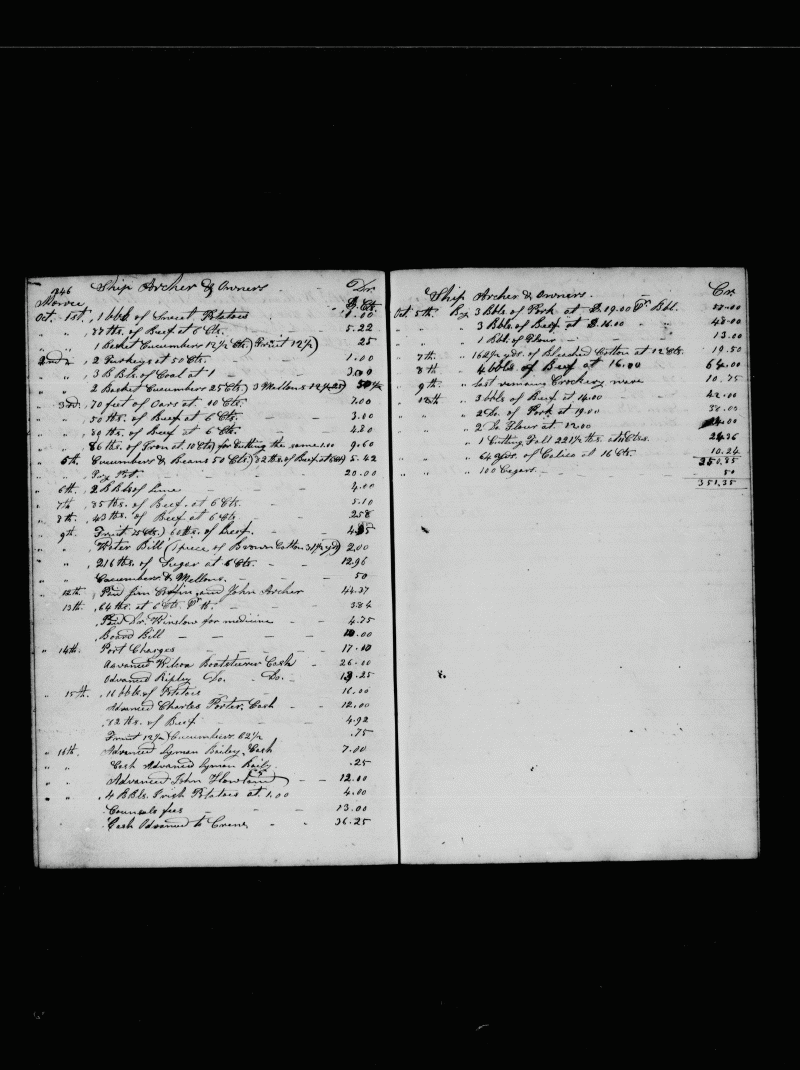 Ship Archer & Owners Dr.
D. Cts.
Oct. 1st. 1 bbl of Sweet Potatoes 1.00
" " 87 lbs. of Beef at 6 Cts. 5.22
1 Basket Cucumbers 12½ Cts.) Fruit 12½) 25
2nd " 2 Turkeys at 50 Cts. 1.00
" " 3 B Bls. of Coal at 1 3.00
" " 2 Basket Cucumbers 25 Cts.) 3 Mellons 12½
" 3rd. 70 feet of Oars at 10 Cts. 7.00
" " 50 lbs. of Beef at 6 Cts. 3.00
" " 80 lbs. of Beef at 6 Cts. 4.80
" " 86 lbs. of Iron at 10 Cts) for Cutting the same 1.00 9.60
" 5th. Cucumbers & Beans 50 Cts.) 82 lbs. of Beef at 6 Cts) 5.42
" " 20.00
" 6th. 2 B Bls of Lime 4.00
" 7th. 85 lbs. of Beef at 6 Cts. 5.10
" 8th. 43 lbs. of Beef at 6 Cts. 258
" 9th. Fruit 25 Cts.) 60 lbs. of Beef.
" " Water Bill (1 piece of Brown Cotton 31½ yds) 2.00
" " 216 lbs. of Sugar at 6 Cts. 12.96
" " Cucumbers & Mellons. 50
" 12th. Paid Jim and John Archer 44.37
" 13th. 64 lbs. at 6 Cts. Pr. lb. 3.84
Paid Dr. Winslow for medicine 4.75
Board Bill 10.00
" 14th. Port Charges 17.10
Advanced Wilson Boatsteerer Cash 26.00
Advanced Ripley Do. Do. 13.25
" 15th. 11 bbls of Potatoes 11.00
Advanced Charles Porter, Cash 12.00
82 lbs. of Beef 4.92
Fruit 12½) Cucumbers 62½ .75
" 16th. Advanced Lyman Bailey, Cash 7.00
" " Cash Advanced Lyman Baily. .25
" " Advanced John Howland 12.00
" " 4 B Bls. Irish Potatoes at 1.00 4.00
Counsels fees 13.00
Cash Advanced to Crane 36.25
Ship Archer & Owners. Cr.
Oct. 5th. By 3 Bbls. of Pork at D. 19.00 Pr. Bbl. 57.00
" " " 3 Bbls. of Beef at D. 16.00 48.00
" " " 1 Bbl. of Flour 13.00
" 7th " 162½ yds. of Bleached Cotton at 12 Cts. 19.50
" 8th " 4 bbls. of Beef at 16.00 64.00
" 9th " Crockery ware 10.75
" 12th " 3 bbls of Beef at 14.00 42.00
" " " 2 Do. of Pork at 19.00 38.00
" " " 2 Do Flour at 12.00 24.00
" " " 1 Cutting Fall 221½ lbs. at Cts. 24.36
" " " 64 yds. of Calico at 16 Cts. 10.24
350.85
" " " 100 Cegars. 50
351.35